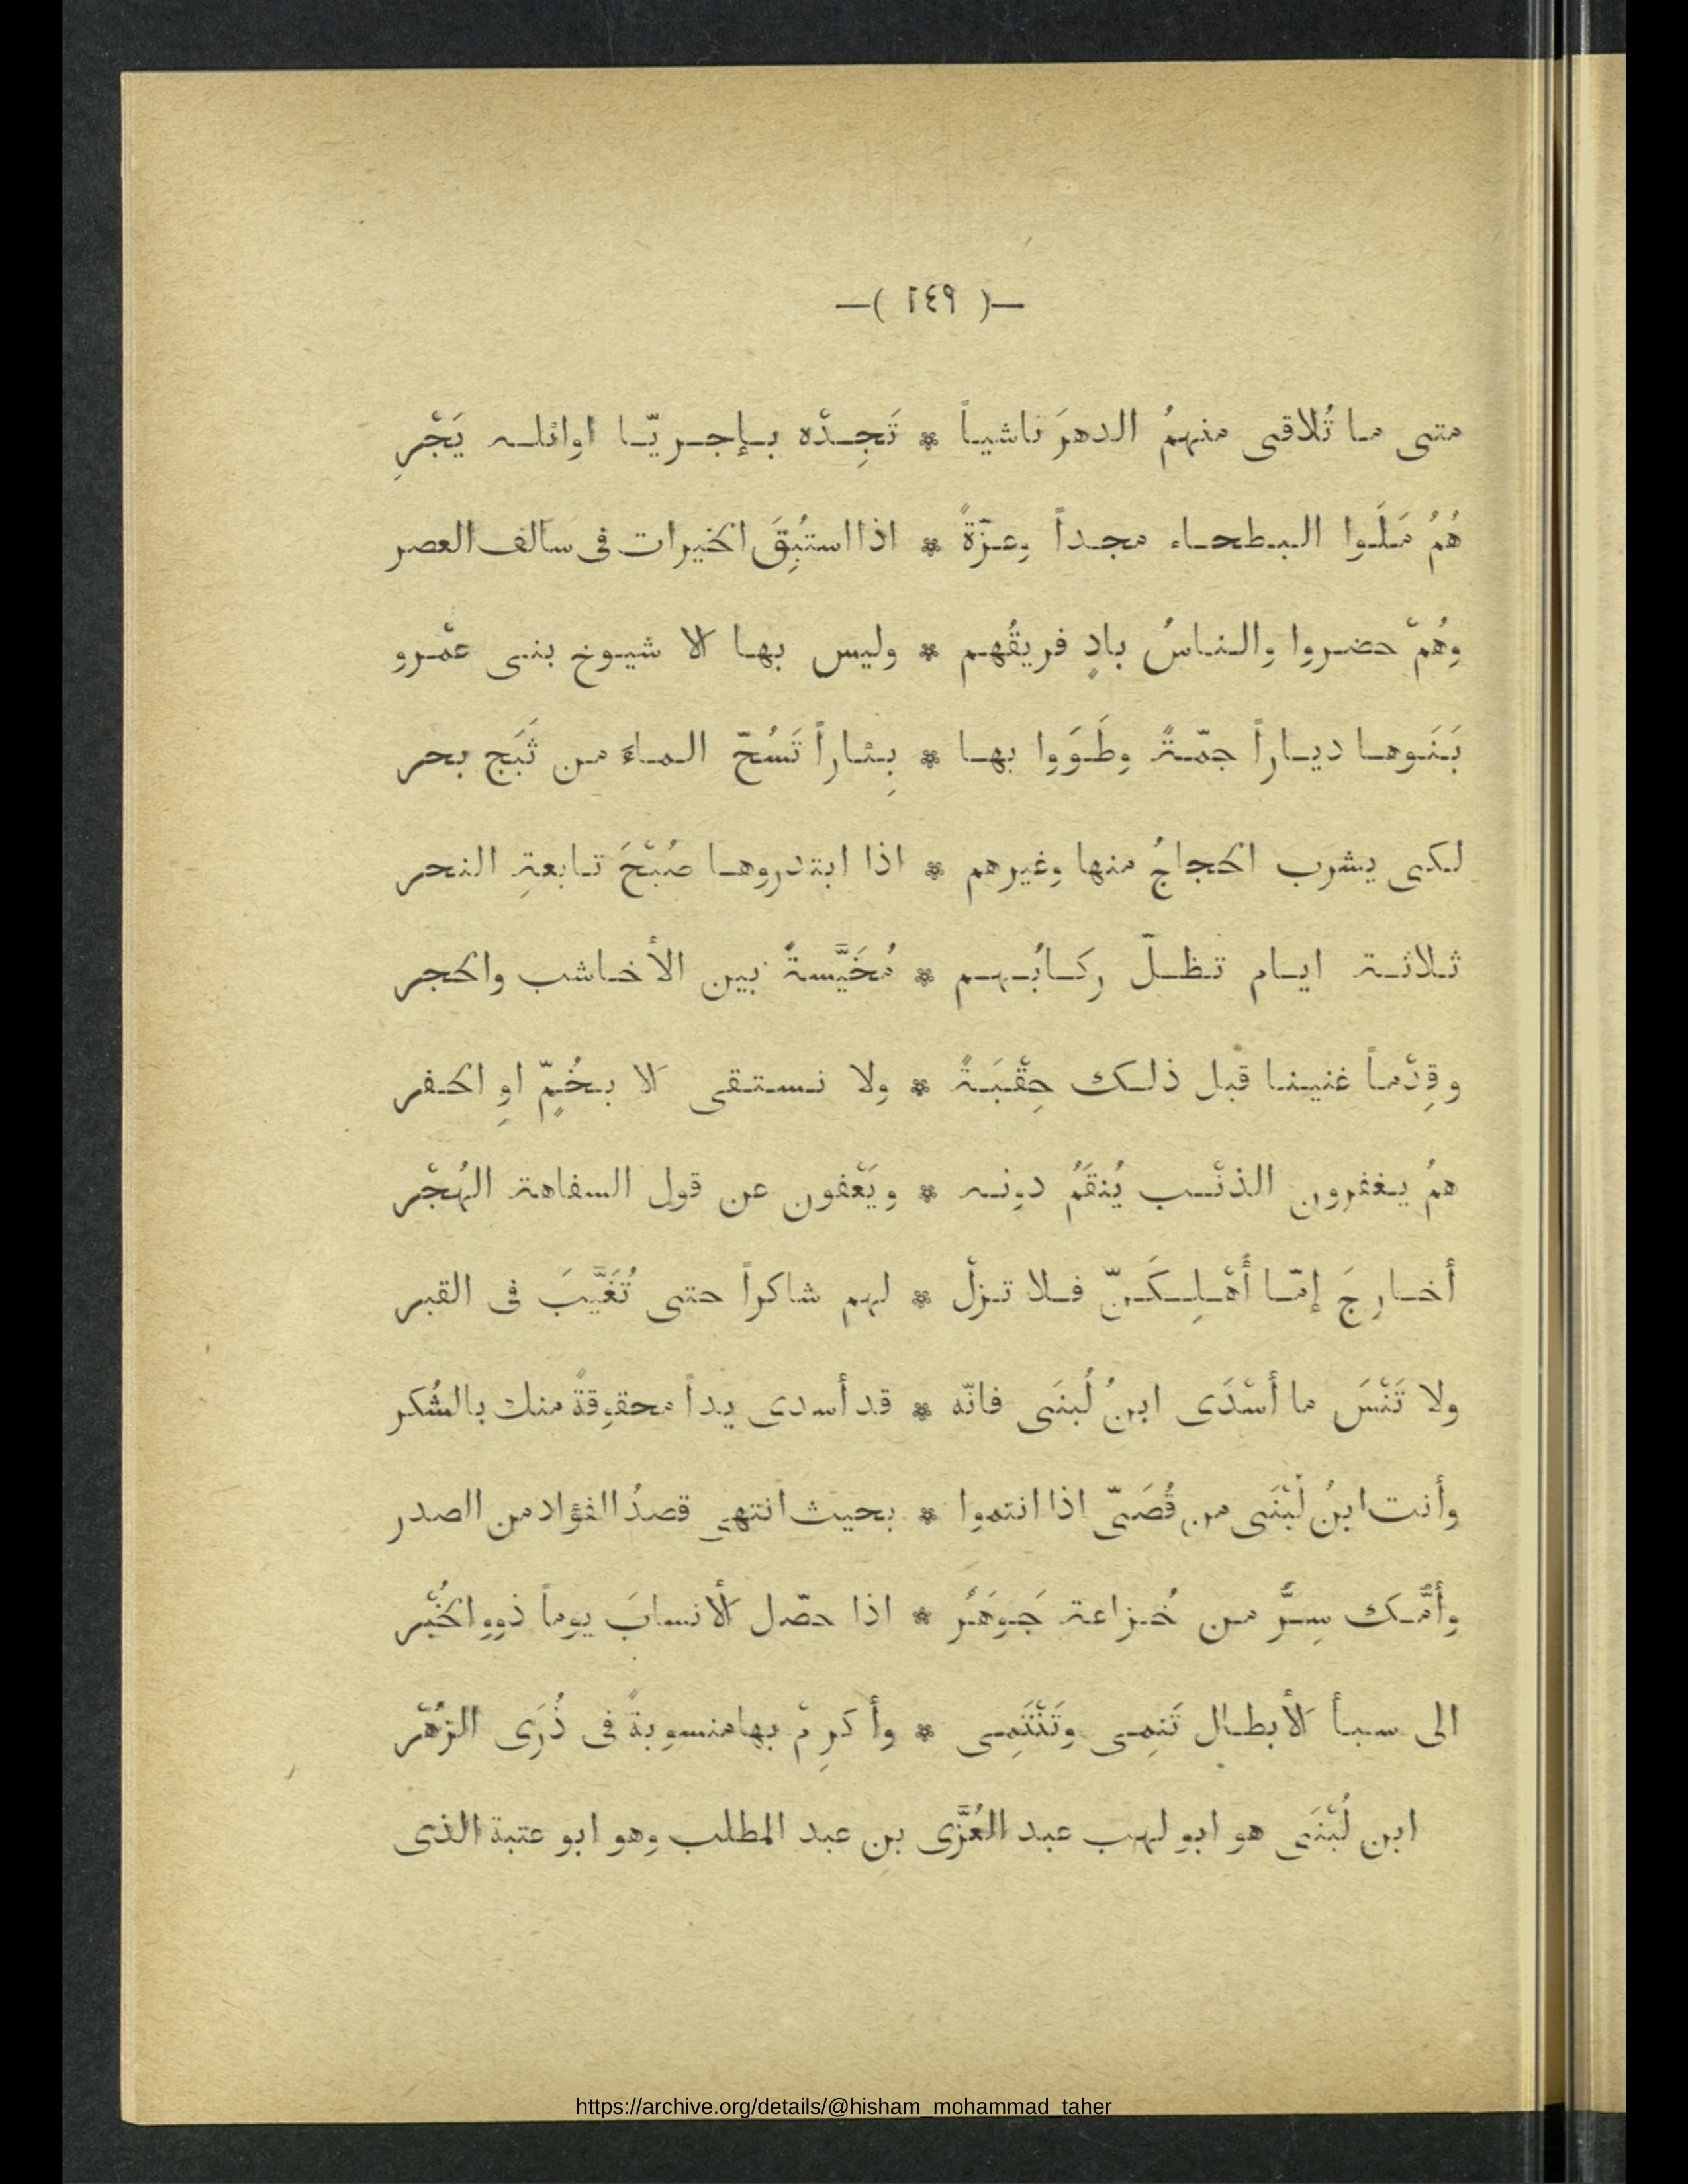 —( ٢٤٩ )—
متى ما تُلاقى منهمُ الدهرَ ناشياً * تَجِدْه بإجريّا اوائله يَجْرِ
هُمُ مَلَوا البطحاء مجداً وعزّةً * اذا استُبِقَ الخيرات فى سالف العصر
وهُمْ حضروا والناسُ بادٍ فريقُهم * وليس بها الا شيوخ بنى عمْرو
بَنَوها دياراً جمّةً وطَوَوا بها * بِئاراً تَسُحّ الماءَ من ثَبَج بحر
لكى يشرب الحجاجُ منها وغيرهم * اذا ابتدروها صُبْحَ تابعةِ النحر
ثلاثة ايام تظلّ ركابُهم * مُخَيَّسةً بين الأخاشب والحجر
وقِدْماً غنينا قبل ذلك حِقْبَةً * ولا نستقى الا بخُمٍّ اوِ الحفر
همُ يغفرون الذنْب يُنقَمُ دونه * ويَعْفون عن قول السفاهة الهُجْر
أخارجَ إمّا أَهْلِكَنّ فلا تزلْ * لهم شاكراً حتى تُغَيَّبَ فى القبر
ولا تَنْسَ ما أسْدَى ابنُ لُبنَى فانّه * قد أسدى يداً محقوقةً منك بالشُكر
وأنت ابنُ لُبْنَى من قُصَىّ اذا انتموا * بحيث انتهى قصدُ الفؤاد من الصدر
وأمُّك سِرٌّ من خُزاعة جَوهَرٌ * اذا حصّل الأنسابَ يوماً ذوو الخُبْر
الى سبأ الأبطال تَنمِى وتَنْتَمِى * وأكرِمْ بها منسوبةً فى ذُرَى الزُهْر
ابن لُبْنَى هو ابو لهب عبد العُزَّى بن عبد المطلب وهو ابو عتبة الذى
https://archive.org/details/@hisham_mohammad_taher